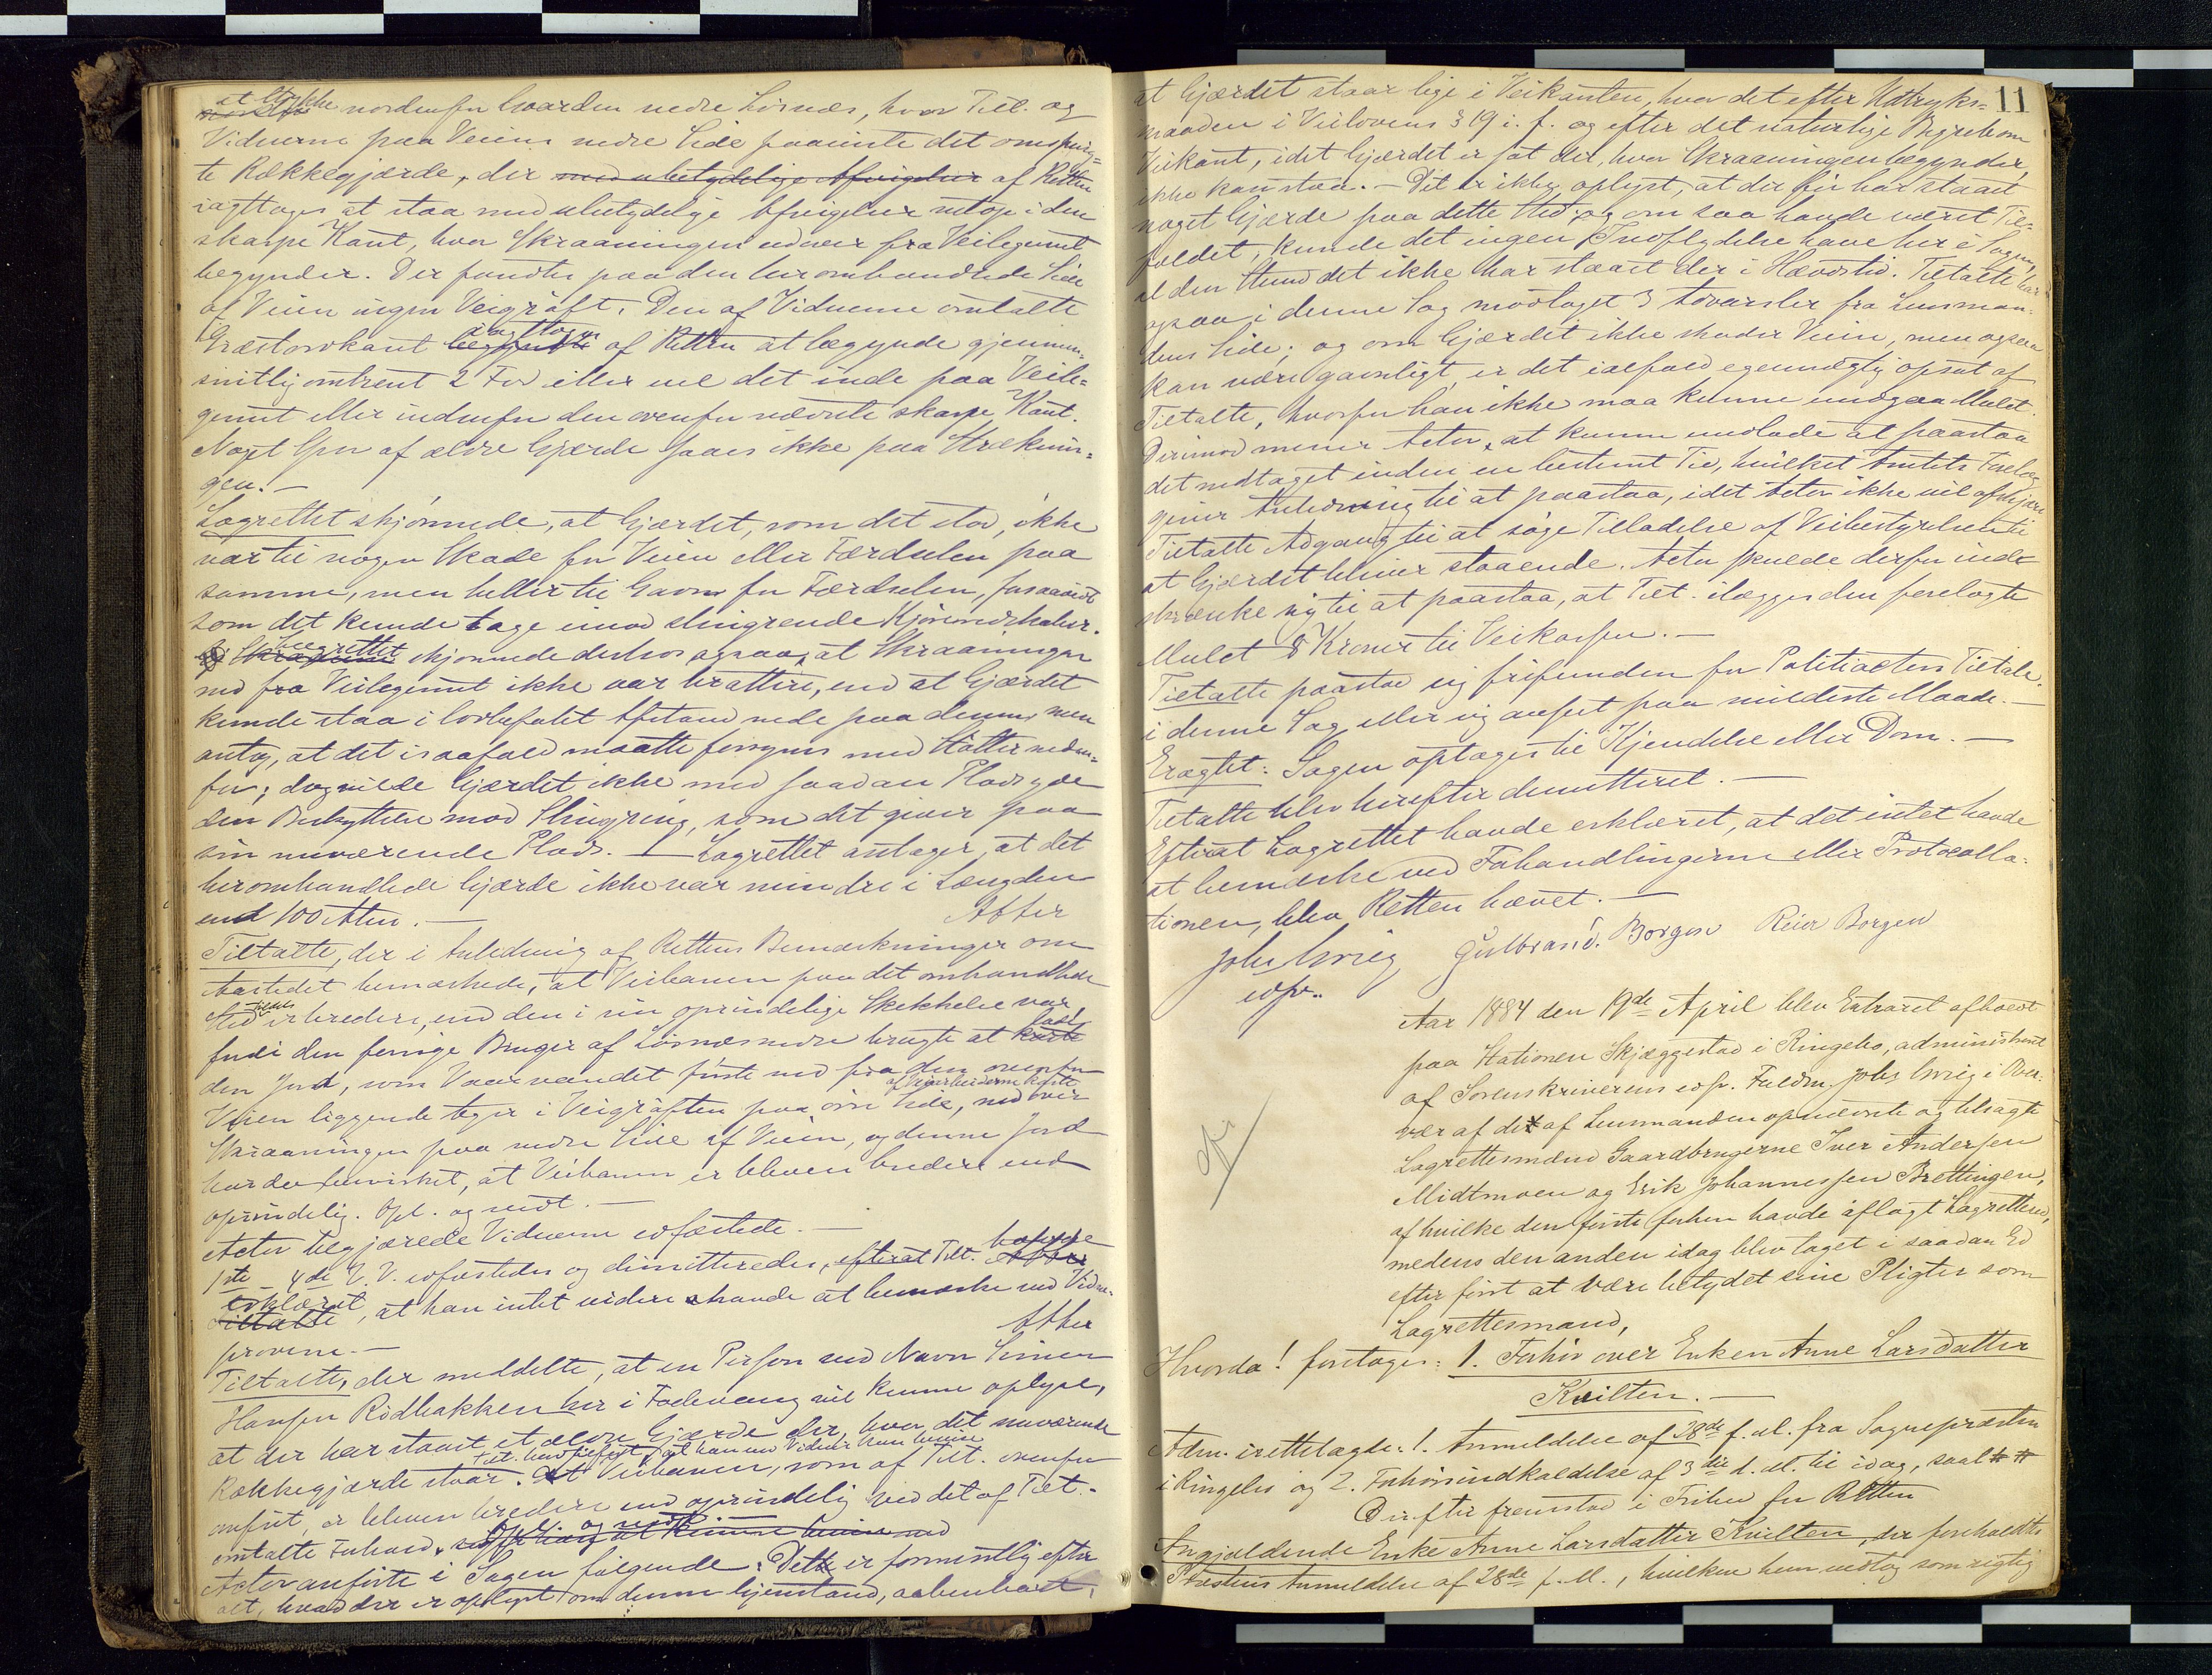 et Stykke nordenfor Gaarden nedre Losnæs, hvor Tilt. og
Vidnerne paa Veiens nedre Side paaviste det omspurg-
te Rækkegjærde, der med ubetydelige Afvigelser af Retten
iagttages at staa med ubetydelige Afvigelser netop i den
skarpe Kant, hvor Skraaningen udover fra Veilegemet
begynder. Der fandtes paa den heromhandlede Side
af Veien ingen Veigrøft. Den af Vidnerne omtalte
Græstorvkant iagttoges af Retten at begynde gjennem-
snitlig omtrent 2 Fod eller vel det inde paa Veile-
gemet eller indenfor den ovenfor nævnte skarpe Kant.
Noget Spor af ældre Gjærde saaes ikke paa Stræknin-
gen.-
Lagrettet skjønnede, at Gjærdet, som det stod, ikke
var til nogen Skade for Veien eller Færdselen paa
samme, men heller til Gavn for Færdselen, forsaavidt
som det kunde tage imod slingrende Kjøreredskaber.
Lagrettet skjønnede derhos ogsaa, at Skraaningen
ned fra Veilegemet ikke var brattere, end at Gjærdet
kunde staa i lovbefalet Afstand nede paa denne, men
antog, at det isaafald maatte forsynes med Støtter neden-
for; dog vilde Gjærdet ikke med saadan Plads yde
den Beskyttelse mod Slingring, som det giver paa
sin nuværende Plads. - Lagrettet antager, at det
heromhandlede Gjærde ikke var mindre i Længden
end 100 Alen.-
Atter
Tiltalte, der i Anledning af Rettens Bemærkninger om
Aastedet bemærkede, at Veibanen paa det omhandlede
Sted er bredere, end den i sin oprindelige Skikkelse var,
fordi den forrige Bruger af Losnæs nedre brugte at kaste
den Jord, som Vaarvandet førte ned fra den ovenfor
Veien liggende Ager i Veigrøften paa øvre Side, ned over
Skraaningen paa nedre Side af Veien, og denne Jord
har da bevirket, at Veibanen er bleven bredere end
oprindelig. Opl. og vedt.-
Actor begjærede Vidnerne edfæstede.-
1ste - 4de V. V. edfæstedes og dimitteredes, efterat Tilt. havde
erklæret, at han intet videre havde at bemærke ved Vidne-
provene.-
Atter
Tiltalte, der meddelte, at en Person ved Navn Simen
Hansen Rødbakken her i Fodevang vil kunne oplyse,
at der har staaet et ældre Gjærde der, hvor det nuværende
Rækkegjærde staar. At Veibanen, som af Tilt. ovenfor
anført, er bleven bredere end oprindelig ved det af Tilt.
omtalte Forhold. Opl. og vedt.
Actor anførte i Sagen følgende: Dette er formentlig efter
alt, hvad der er oplyst om denne Gjenstand, aabenbart,
11
at Gjærdet staar lige i Veikanten, hvor det efter Udtryks-
maaden i Veilovens § 19 i. f. og efter det naturlige Begreb om
Veikant, idet Gjærdet er sat der, hvor Skraaningen begynder,
ikke kan staa.- Det er ikke oplyst, at der før har staaet
noget Gjærde paa dette Sted, og om saa havde været Til-
fældet, kunde det ingen Indflydelse have her i Sagen,
al den Stund det ikke har staaet der i Hævdstid. Tiltalte har
ogsaa i denne Sag modtaget 3 Advarsler fra Lensman-
dens Side; og om Gjærdet ikke skader Veien, men ogsaa
kan være gavnligt, er det ialfald egenmægtig opsat af
Tiltalte, hvorfor han ikke maa kunne undgaa Mulct.
Derimod mener Actor, at kunne undlade at paastaa
det nedtaget inden en bestemt Tid, hvilket Amtets Forelæg
giver Anledning til at paastaa, idet Actor ikke vil afskjære
Tiltalte Adgang til at søge Tilladelse af Veibestyrelsen til
at Gjærdet bliver staaende. Actor skulde derfor ind-
skrænke sig til at paastaa, at Tilt. ilægges den forelagte
Mulct 8 Kroner til Veikassen.-
Tiltalte paastod sig frifunden for Politiactors Tiltale
i denne Sag eller sig anseet paa mildeste Maade.-
Eragtet: Sagen optages til Kjendelse eller Dom.-
Tiltalte blev herefter demitteret.-
Efterat Lagrettet havde erklæret, at det intet havde
at bemærke ved Forhandlingerne eller Protocolla-
tionen, blev Retten hævet.-
Johs Grieg Gulbrand. Borgen Reier Borgen
edsv..
Aar 1884 den 19de April blev Extraret afholdt
paa Stationen Skjæggestad i Ringebo, administreret
af Sorenskriverens edsv. Fuldm. Johs Grieg i Over-
vær af de af Lensmanden opnævnte og tilsagte
Lagrettesmænd Gaardbrugerne Iver Andersen
Midtmoen og Erik Johannessen Brettingen,
af hvilke den første forhen havde aflagt Lagretteed,
medens den anden idag blev taget i saadan Ed
efter først at være betydet sine Pligter som
Lagrettesmand,
Hvorda! foretages: 1. Forhør over Enken Anne Larsdatter
Kvilten.-
Adm. irettelagde: 1. Anmeldelse af 28de f. M. fra Sognepræsten
i Ringebo og 2. Forhørsindkaldelse af 3die d. M. til idag, saal.
Derefter fremstod i Frihed for Retten
Angjældende Enke Anne Larsdatter Kvilten, der foreholdtes
Præstens Anmeldelse af 28de f. M., hvilken hun vedtog som rigtig